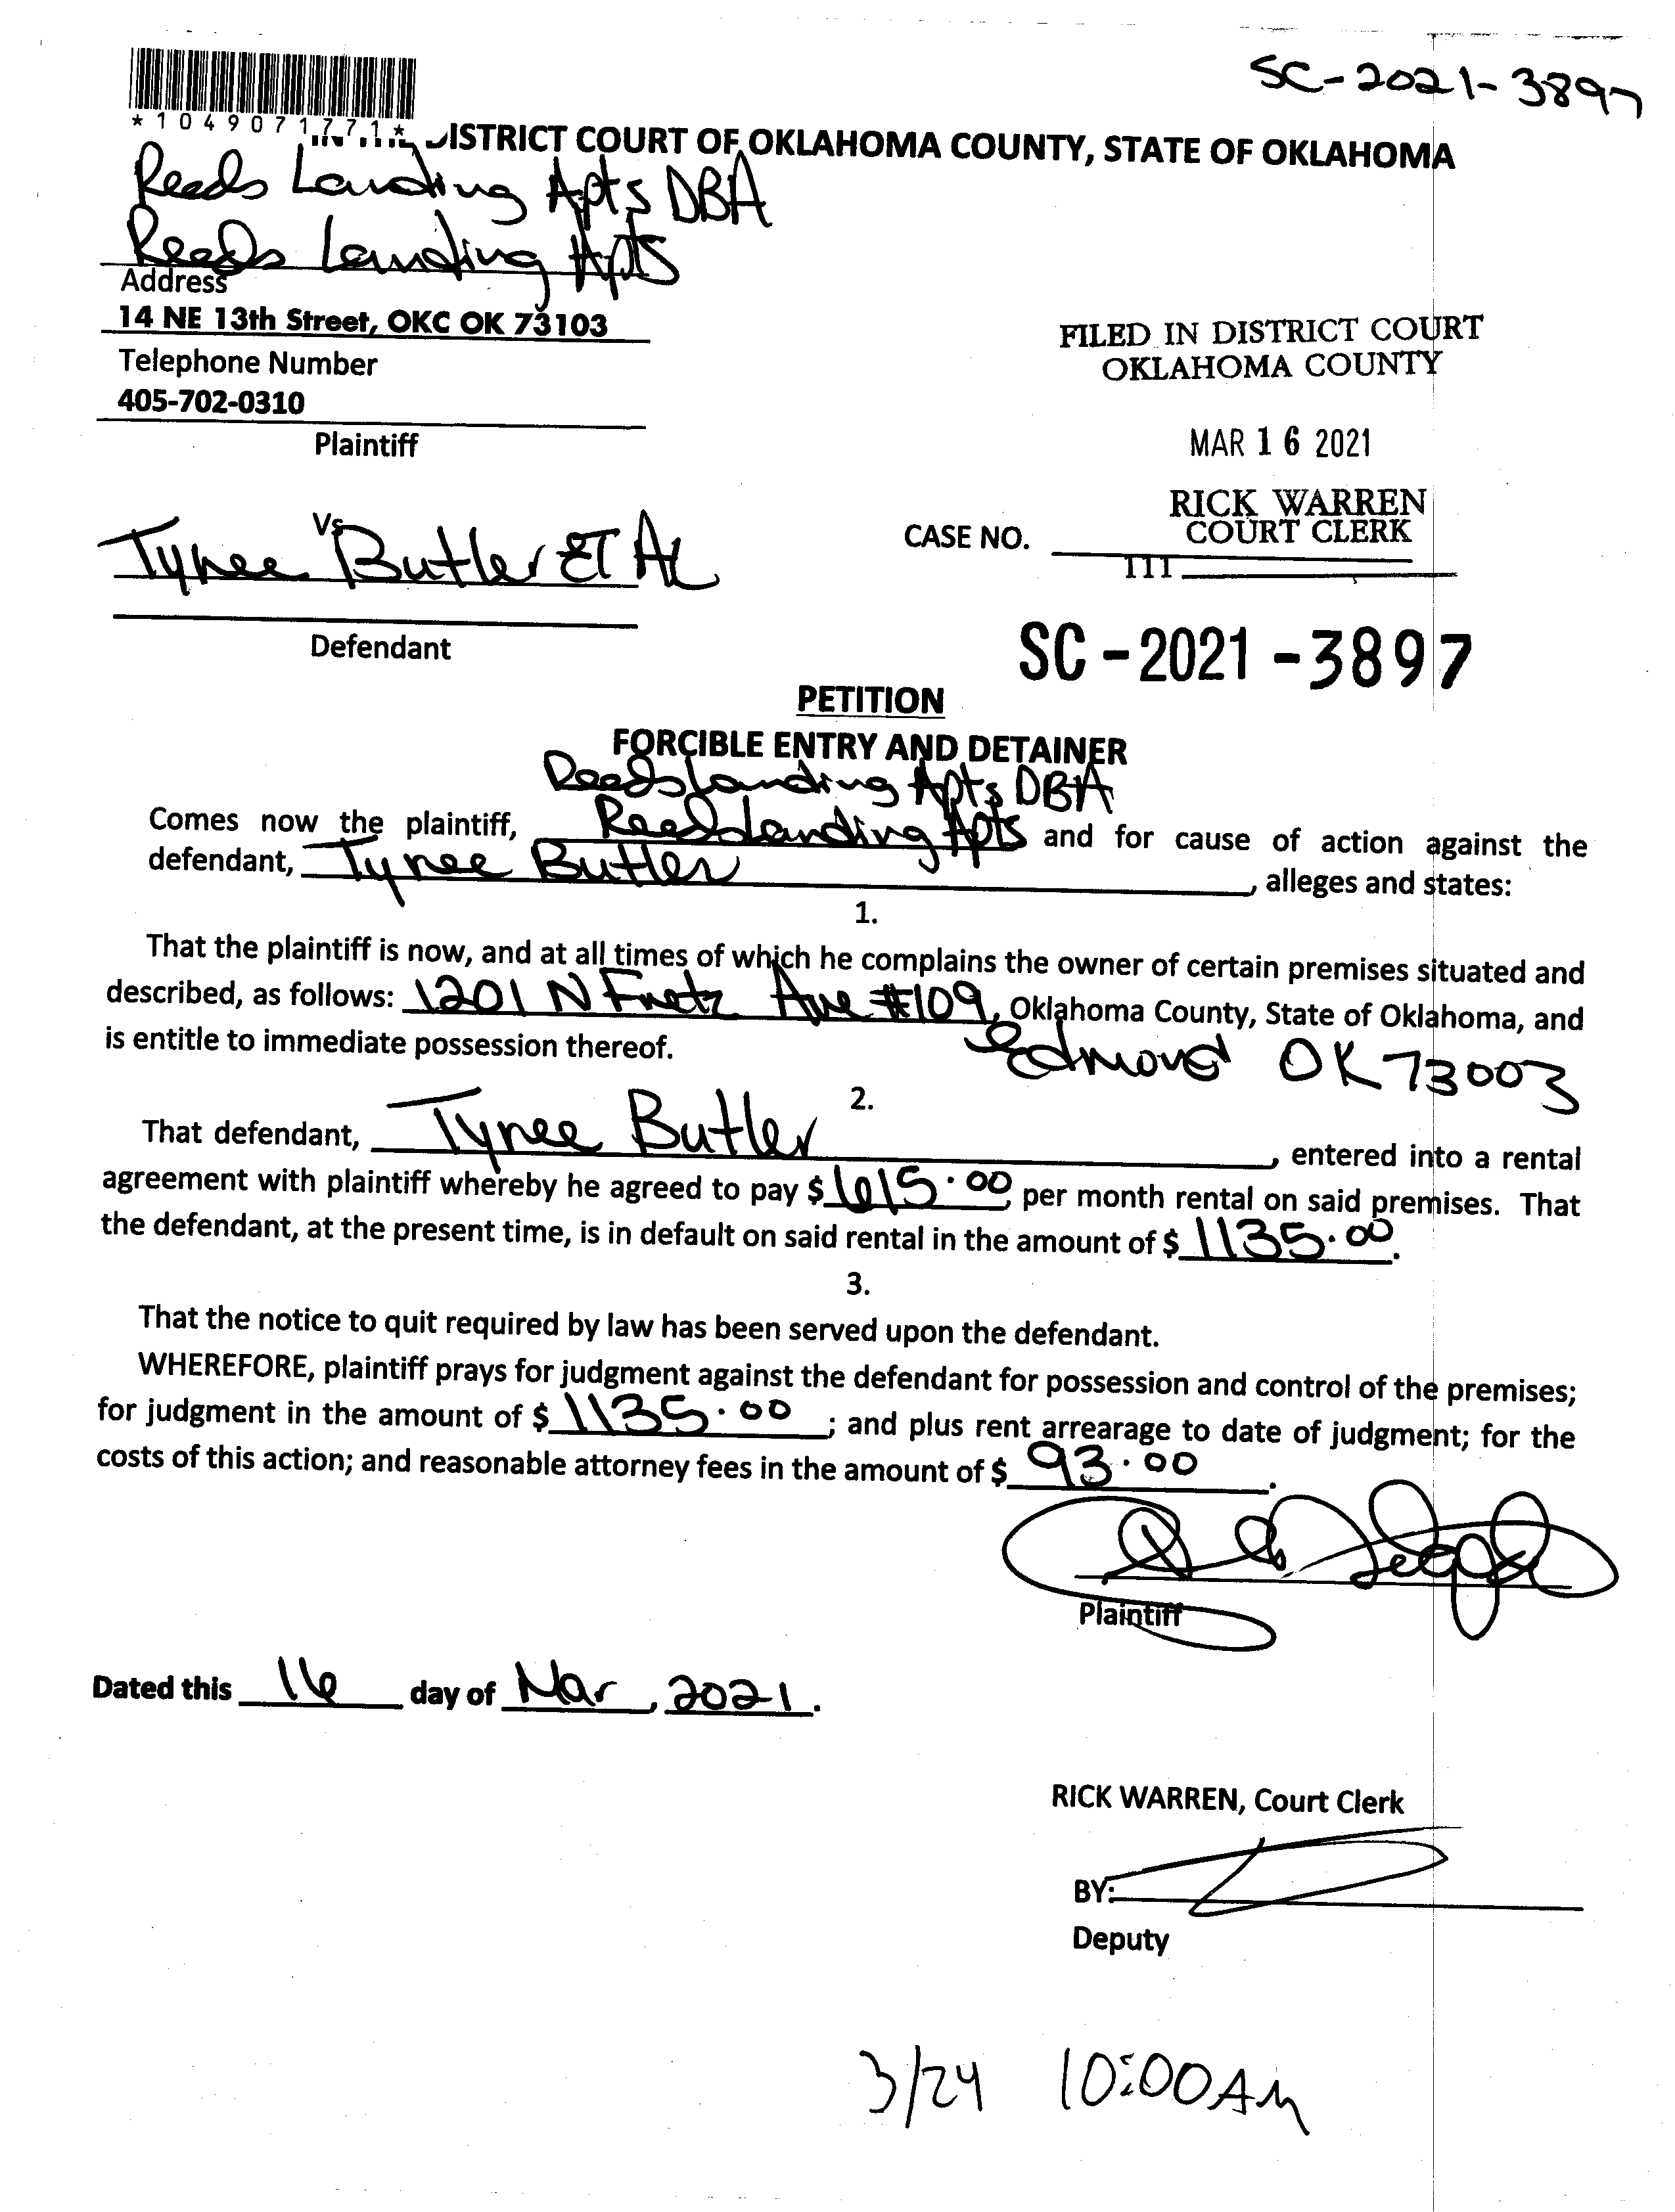 SC-2021-3897
*1049071771*
IN THE DISTRICT COURT OF OKLAHOMA COUNTY, STATE OF OKLAHOMA
Reeds Landing Apts DBA
Reeds Landing Apts
Address
14 NE 13th Street, OKC OK 73103
Telephone Number
405-702-0310
Plaintiff
FILED IN DISTRICT COURT
OKLAHOMA COUNTY
MAR 16 2021
RICK WARREN
COURT CLERK
Vs
Tynee Butler ET AL
CASE NO.
111
Defendant
SC-2021-3897
PETITION
FORCIBLE ENTRY AND DETAINER
Reeds Landing Apts DBA
Comes now the plaintiff, Reeds Landing Apts and for cause of action against the
defendant, Tynee Butler, alleges and states:
1.
That the plaintiff is now, and at all times of which he complains the owner of certain premises situated and
described, as follows: 1201 N Fretz Ave #109, Oklahoma County, State of Oklahoma, and
is entitle to immediate possession thereof. Edmond OK 73003
2.
That defendant, Tynee Butler, entered into a rental
agreement with plaintiff whereby he agreed to pay $ 615.00, per month rental on said premises. That
the defendant, at the present time, is in default on said rental in the amount of $ 1135.00.
3.
That the notice to quit required by law has been served upon the defendant.
WHEREFORE, plaintiff prays for judgment against the defendant for possession and control of the premises;
for judgment in the amount of $ 1135.00; and plus rent arrearage to date of judgment; for the
costs of this action; and reasonable attorney fees in the amount of $ 93.00.
Plaintiff
Dated this 16 day of Mar, 2021.
RICK WARREN, Court Clerk
BY:
Deputy
3/24 10:00AM